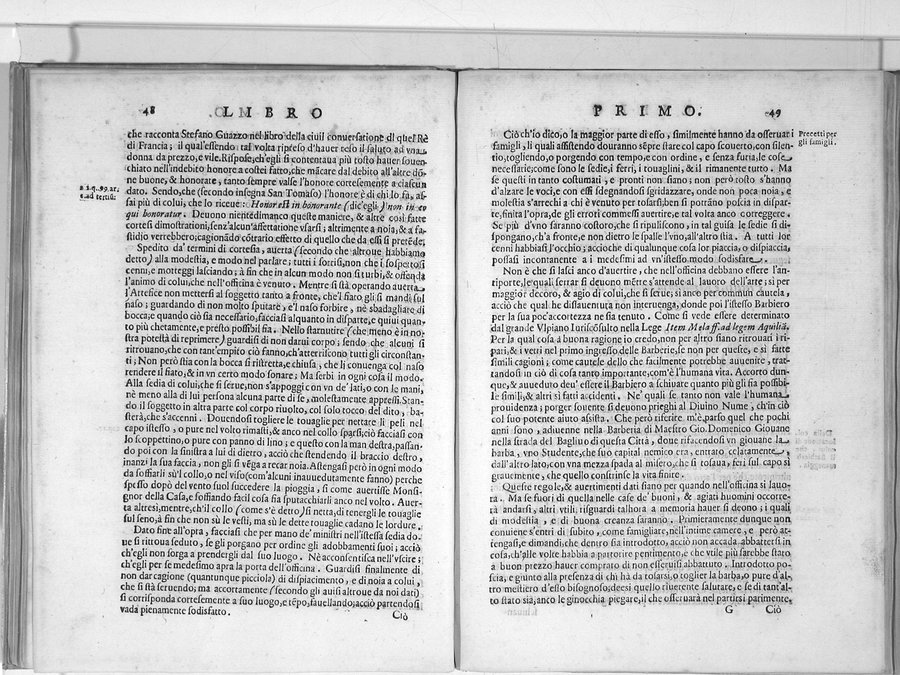 48 LIBRO
che racconta Stefano Guazzo nel libro della ciuil conuersatione di quel Rè
di Francia; il qual'essendo tal volta ripreso d'hauer reso il saluto ad vna
donna da prezzo, e vile. Rispose, ch'egli si contentaua più tosto hauer souen
chiato nell'indebito honore a costei fatto, che mãcare dal debito all'altre dõ
ne buone, & honorate; tanto sempre valse l'honore cortesemente a ciascun
dato. Sendo, che (secondo insegna San Tomaso) l'honore è di chi lo fa, as-
sai più di colui, che lo riceue: Honor est in honorante (dic'egli) non in eo
qui honoratur. Deuono nientedimanco queste maniere, & altre così fatte
cortesi dimostrationi, senz'alcun'affettatione vsarsi; altrimente a noia, & a fa-
stidio verrebbero, cagionãdo cõtrario effetto di quello che da essi si pretẽde.
Spedito da' termini di cortesia, auuerta (secondo che altroue habbiamo
detto) alla modestia, e modo nel parlare; tutti i sorrisi, non che i sospettosi
cenni, e motteggi lasciando; à fin che in alcun modo non si turbi, & offenda
l'animo di colui, che nell'officina è venuto. Mentre si stà operando auuerta
l'Artefice non mettersi al soggetto tanto a fronte, che'l fiato gli si mandi sul
naso; guardando di non molto sputare, e'l naso forbire, nè sbadagliare di
bocca; e quando ciò sia necessario, facciasi alquanto in disparte, e quiui quan-
to più chetamente, e presto possibil sia. Nello starnutire (che meno è in no-
stra potestà di reprimere) guardisi di non darui corpo; sendo che alcuni si
ritrouano, che con tant'empito ciò fanno, ch'atterriscono tutti gli circonstan-
ti; Non però stia con la bocca sì ristretta, e chiusa, che li conuenga col naso
rendere il fiato, & in vn certo modo sonare; Ma serbi in ogni cosa il modo.
Alla sedia di colui, che si serue, non s'appoggi con vn de' lati, o con le mani,
nè meno alla di lui persona alcuna parte di se, molestamente appressi. Stan-
do il soggetto in altra parte col corpo riuolto, col solo tocco del dito, ba-
sterà, che s'accenni. Douendosi togliere le touaglie per nettare li peli nel
capo istesso, o pure nel volto rimasti, & anco nel collo sparsi; ciò facciasi con
lo scoppettino, o pure con panno di lino; e questo con la man destra, passan-
do poi con la sinistra a lui di dietro, acciò che stendendo il braccio destro,
inanzi la sua faccia, non gli si vẽga a recar noia. Astengasi però in ogni modo
da soffiarli sù'l collo, o nel viso (com'alcuni inauuedutamente fanno) perche
spesso dopò del vento suol succedere la pioggia, si come auertisse Monsi-
gnor della Casa, e soffiando facil cosa sia sputacchiarli anco nel volto. Auer-
ta altresi, mentre, ch'il collo (come s'è detto) si netta, di tenergli le touaglie
sul seno, à fin che non sù le vesti, ma sù le dette touaglie cadano le lordure.
Dato fine all'opra, facciasi che per mano de' ministri nell'istessa sedia do-
ue si ritroua seduto, se gli porgano per ordine gli adobbamenti suoi; acciò
ch'egli non sorga a prendergli dal suo luogo. Nè acconsentisca nell'vscire;
ch'egli per se medesimo apra la porta dell'officina. Guardisi finalmente di
non dar cagione (quantunque picciola) di dispiacimento, e di noia a colui,
che si stà seruendo; ma accortamente (secondo gli auisi altroue da noi dati)
si corrisponda cortesemente a suo luogo, e tẽpo, fauellando; acciò partendosi
vada pienamente sodisfatto.
Ciò
PRIMO. 49
Ciò ch'io dico, o la maggior parte di esso, similmente hanno da osseruar i
famigli, li quali assistendo douranno sẽpre stare col capo scouerto, con silen-
tio, togliendo, o porgendo con tempo, e con ordine, e senza furia, le cose
necessarie; come sono le sedie, i ferri, i touaglini, & il rimanente tutto. Ma
se questi in tanto costumati, e pronti non siano; non però tosto s'hanno
d'alzare le voci, e con essi sdegnandosi sgridazzare, onde non poca noia, e
molestia s'arrechi a chi è venuto per tosarsi; ben si potrãno poscia in dispar-
te, finita l'opra, de gli errori commessi auertire, e tal volta anco correggere.
Se più d'vno saranno costoro, che si ripuliscono, in tal guisa le sedie si di-
spongano, ch'a fronte, e non dietro le spalle l'vno, all'altro stia. A tutti lor
cenni habbiasi l'occhio; accioche di qualunque cosa lor piaccia, o dispiaccia,
possasi incontanente a i medesimi ad vn'istesso modo sodisfare.
Non è che si lasci anco d'auertire, che nell'officina debbano essere l'an-
tiporte, le quali serrar si deuono mẽtre s'attende al lauoro dell'arte; sì per
maggior decoro, & agio di colui, che si serue; sì anco per commun cautela,
acciò che qual he disauentura non interuenga, donde poi l'istesso Barbiero
per la sua poc'accortezza ne sia tenuto. Come si vede essere determinato
dal grande Vlpiano Iuriscõsulto nella Lege Item Mela ff. ad legem Aquiliã.
Per la qual cosa a buona ragione io credo, non per altro siano ritrouati i ri-
pari, & i vetri nel primo ingresso delle Barberie, se non per queste, e sì fatte
simili cagioni; come cautele dello che facilmente potrebbe auuenire, trat-
tandosi in ciò di cosa tanto importante, com'è l'humana vita. Accorto dun-
que, & auueduto deu' essere il Barbiero a schiuare quanto più gli sia possibi-
le simili, & altri sì fatti accidenti. Ne' quali se tanto non vale l'humana
prouidenza; porger souente si deuono prieghi al Diuino Nume, ch'in ciò
col suo potente aiuto assista. Che però riferire m'è parso quel che pochi
anni sono, adiuenne nella Barberia di Maestro Gio. Domenico Giouane
nella strada del Bagliuo di questa Città, doue rifacendosi vn giouane la
barba, vno Studente, che suo capital nemico era, entratò celatamente,
dall'altro lato, con vna mezza spada al misero, che si tosaua, ferì sul capo sì
grauemente, che quello constrinse la vita finire.
Queste regole, & auertimenti dati siano per quando nell'officina si lauo-
ra. Ma se fuori di quella nelle case de' buoni, & agiati huomini occorre-
rà andarsi, altri vtili, risguardi talhora a memoria hauer si deono; i quali
di modestia, e di buona creanza saranno. Primieramente dunque non
conuiene s'entri di subito, come famigliare, nell'intime camere, e però at-
tengasi, e dimandi, che dentro sia introdotto, acciò non accada abbattersi in
cosa, ch'alle volte habbia a partorire pentimento, e che vtile più sarebbe stato
a buon prezzo hauer comprato di non esseruisi abbattuto. Introdotto po-
scia, e giunto alla presenza di chi hà da tosarsi, o toglier la barba, o pure d'al-
tro mestiero d'esso bisognoso; deesi quello riuerente salutare, e se di tant'al-
to stato sia, anco le ginocchia piegare, il che osseruarà nel partirsi parimente.
G Ciò
Precetti per
gli famigli.